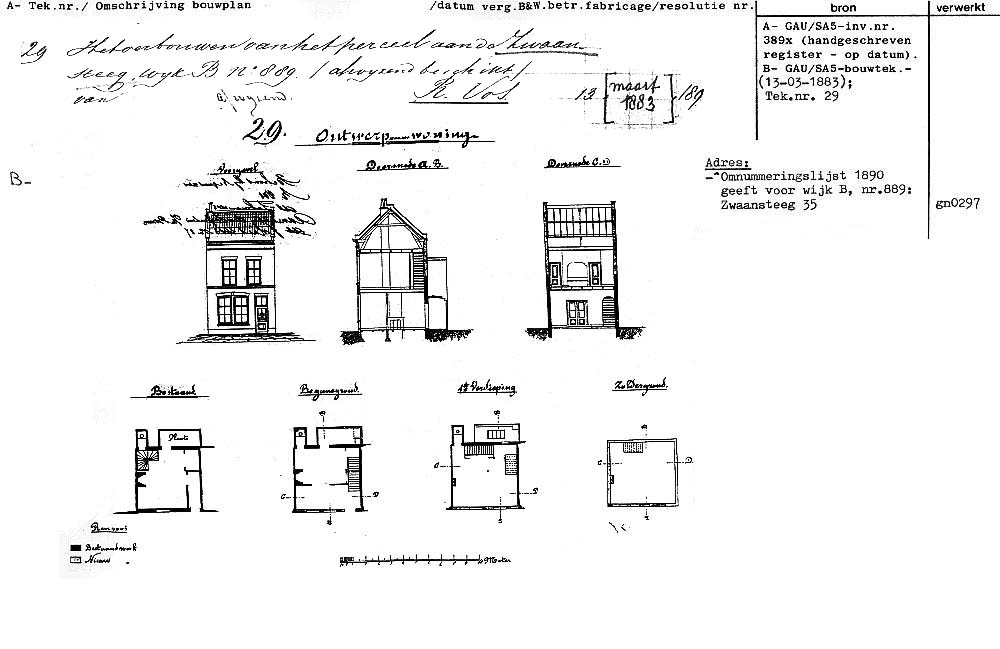 A- Tek.nr./ Omschrijving bouwplan /datum verg.B&W.betr.fabricage/resolutie nr. bron verwerkt
29 Het verbouwen van het perceel aan de Zwaan
steeg, wyk B no 889. / afwyzend beschikt /
van afwyzend. R. Vos. 13 [maart 1883] 189
A- GAU/SA5-inv.nr.
389x (handgeschreven
register - op datum).
B- GAU/SA5-bouwtek.-
(13-03-1883);
Tek.nr. 29
29. Ontwerp woning
B-
Voorgevel Doorsnede A.B. Doorsnede C.D
Adres:
-"Omnummeringslijst 1890
geeft voor wijk B, nr.889:
Zwaansteeg 35 gn0297
Bestaand Beganegrond. 1ste Verdieping Zoldergrond
Plaats
Renvooi
Bestaandwerk
Nieuw
9 Meter